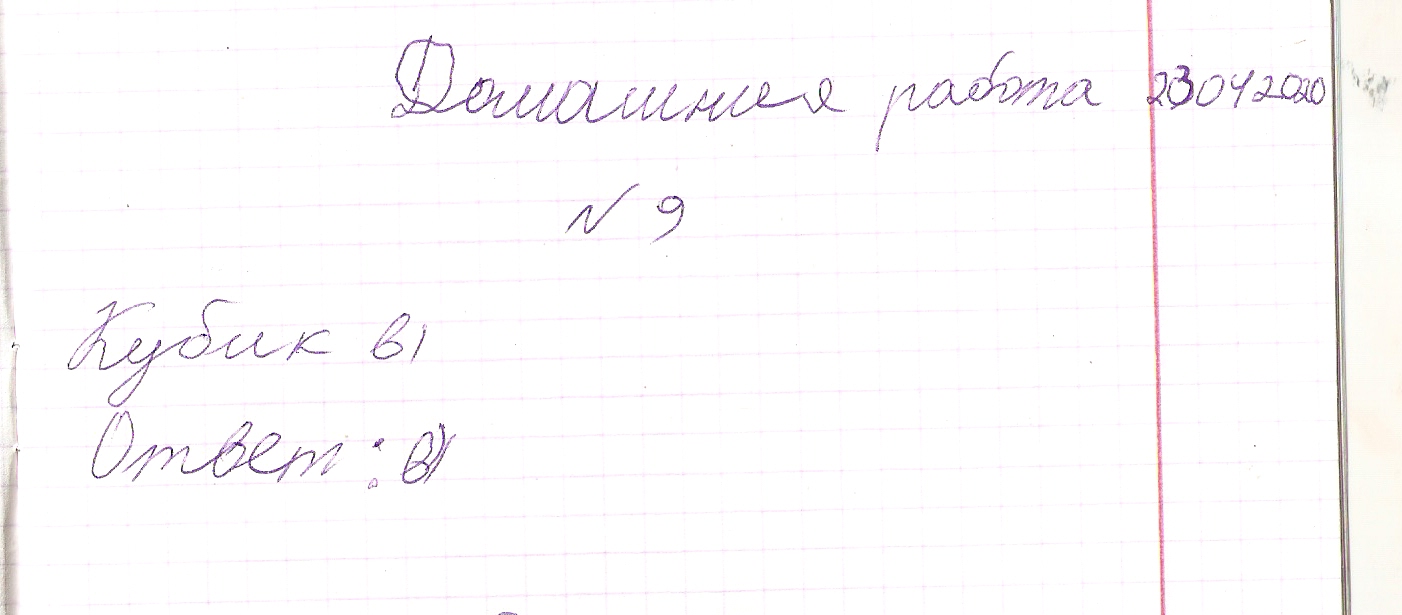 Домашняя работа 23042020
№ 9
Кубик в)
Ответ: в)